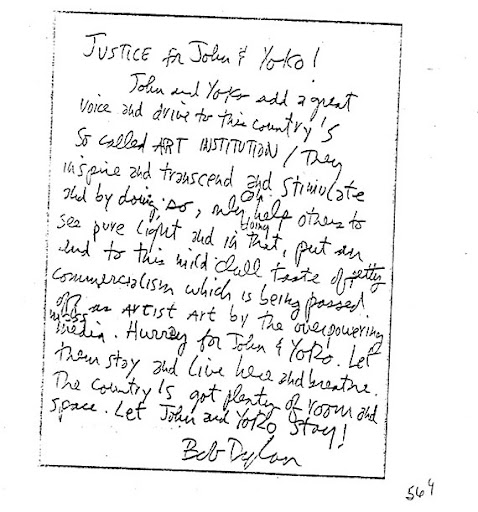 JUSTICE for John & Yoko!
John and Yoko add a great
voice and drive to this country's
so called ART INSTITUTION / They
inspire and transcend and stimulate
and by doing so, only can help others to
see pure light and in doing that, put an
end to this mild dull taste of petty
commercialism which is being passed
off as ARTIST ART by the overpowering
mass media. Hurray for John & Yoko. Let
them stay and live here and breathe.
The country's got plenty of room and
space. Let John and Yoko stay!
Bob Dylan
564